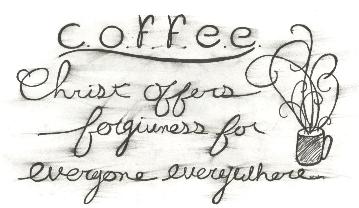 C.O.F.F.E.E.
Christ offers
forgiveness for
everyone everywhere...